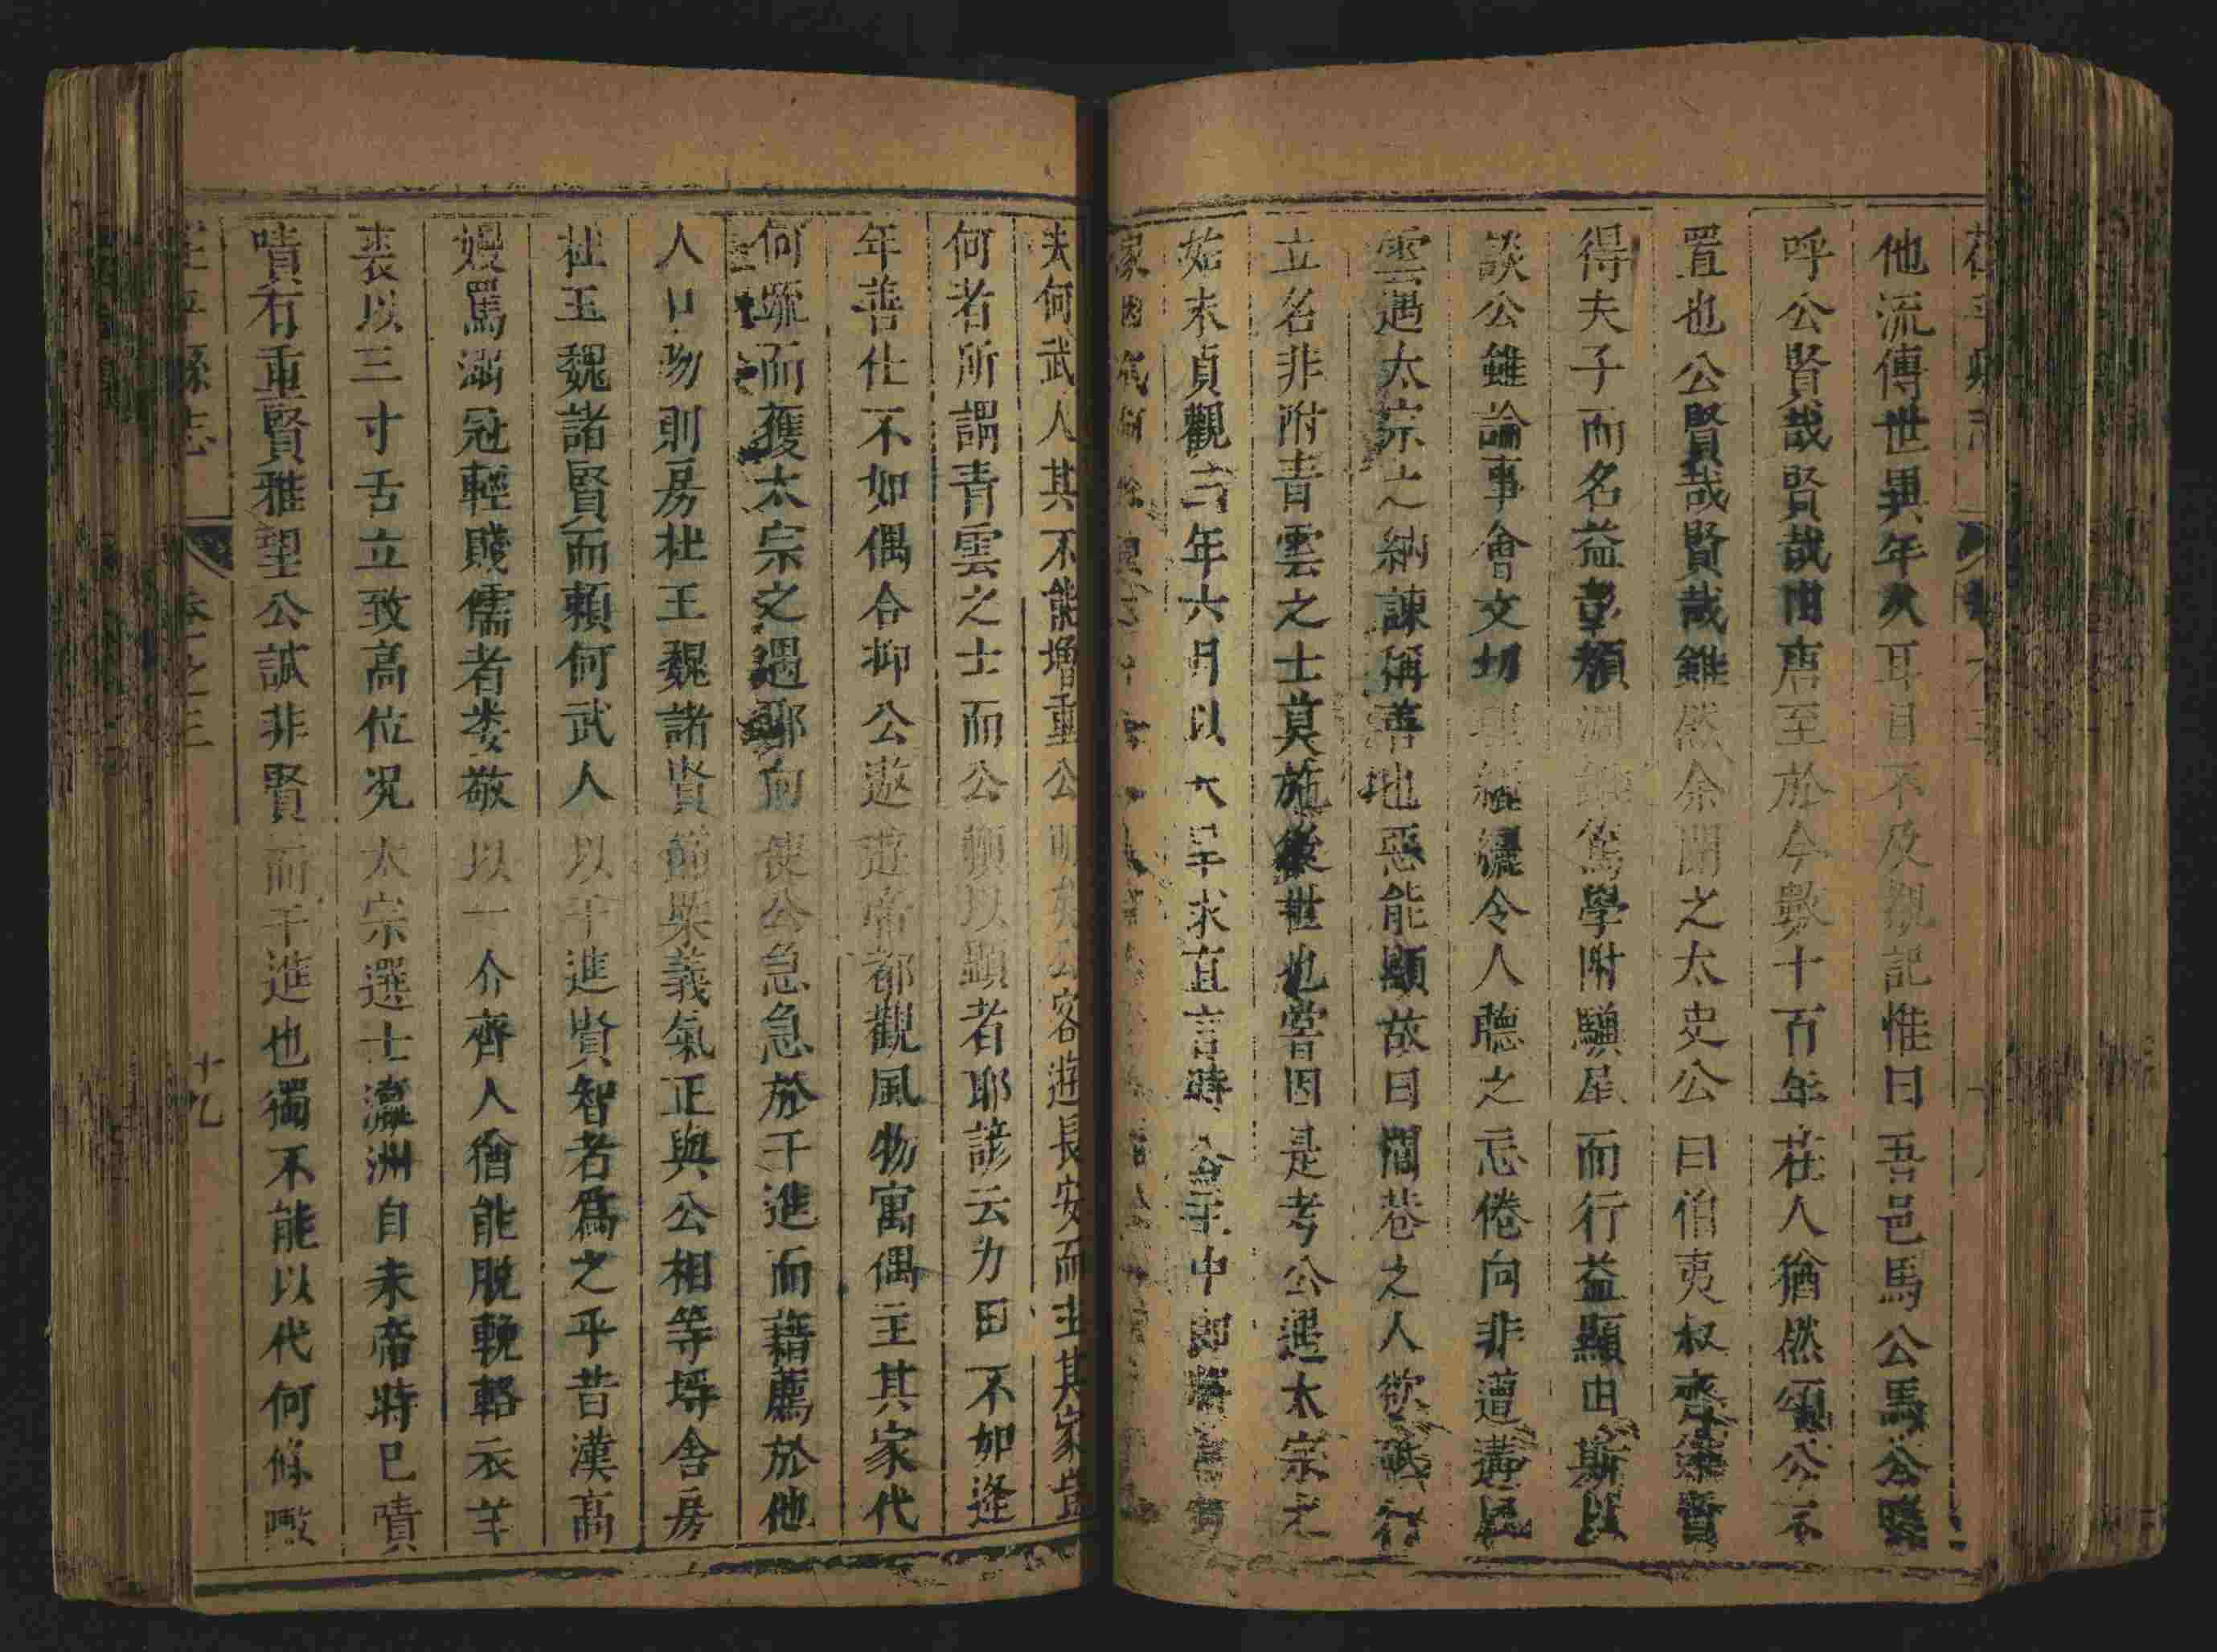 他流傳世異年久耳目不及覩記惟曰吾邑馬公馬公
呼公賢哉賢哉由唐至於今數十百年茌人猶然頌公不
置也公賢哉賢哉雖然余聞之太史公曰伯夷叔齊賢
得夫子而名益彰顏淵篤學附驥尾而行益顯由斯以
談公雖論事會文切理令人聽之忘倦向非遭遘
雲遇太宗之納諫稱善地惡能顯故曰閭巷之人欲砥行
立名非附青雲之士莫施後世也嘗因是考公遇太宗之
始末貞觀三年六月以大旱求直言時中郎將
家因
夫何武人其不能增重公明矣公客遊長安而主其家豈
何者所謂青雲之士而公顧以顯者耶諺云力田不如逢
年善仕不如偶合抑公遨遊帝都觀風物寓偶主其家代
何疏而獲太宗之遇耶向使公急急於干進而藉薦於他
人口吻則房杜王魏諸賢節槩義氣正與公相等埒舍房
杜王魏諸賢而賴何武人以干進賢智者爲之乎昔漢高
嫚罵溺冠輕賤儒者婁敬以一介齊人猶能脫輓輅衣羊
裘以三寸舌立致高位况太宗選士瀛洲自未帝時已嘖
嘖有重賢雅望公誠非賢而干進也獨不能以代何條
茌平縣志 卷之三 十九